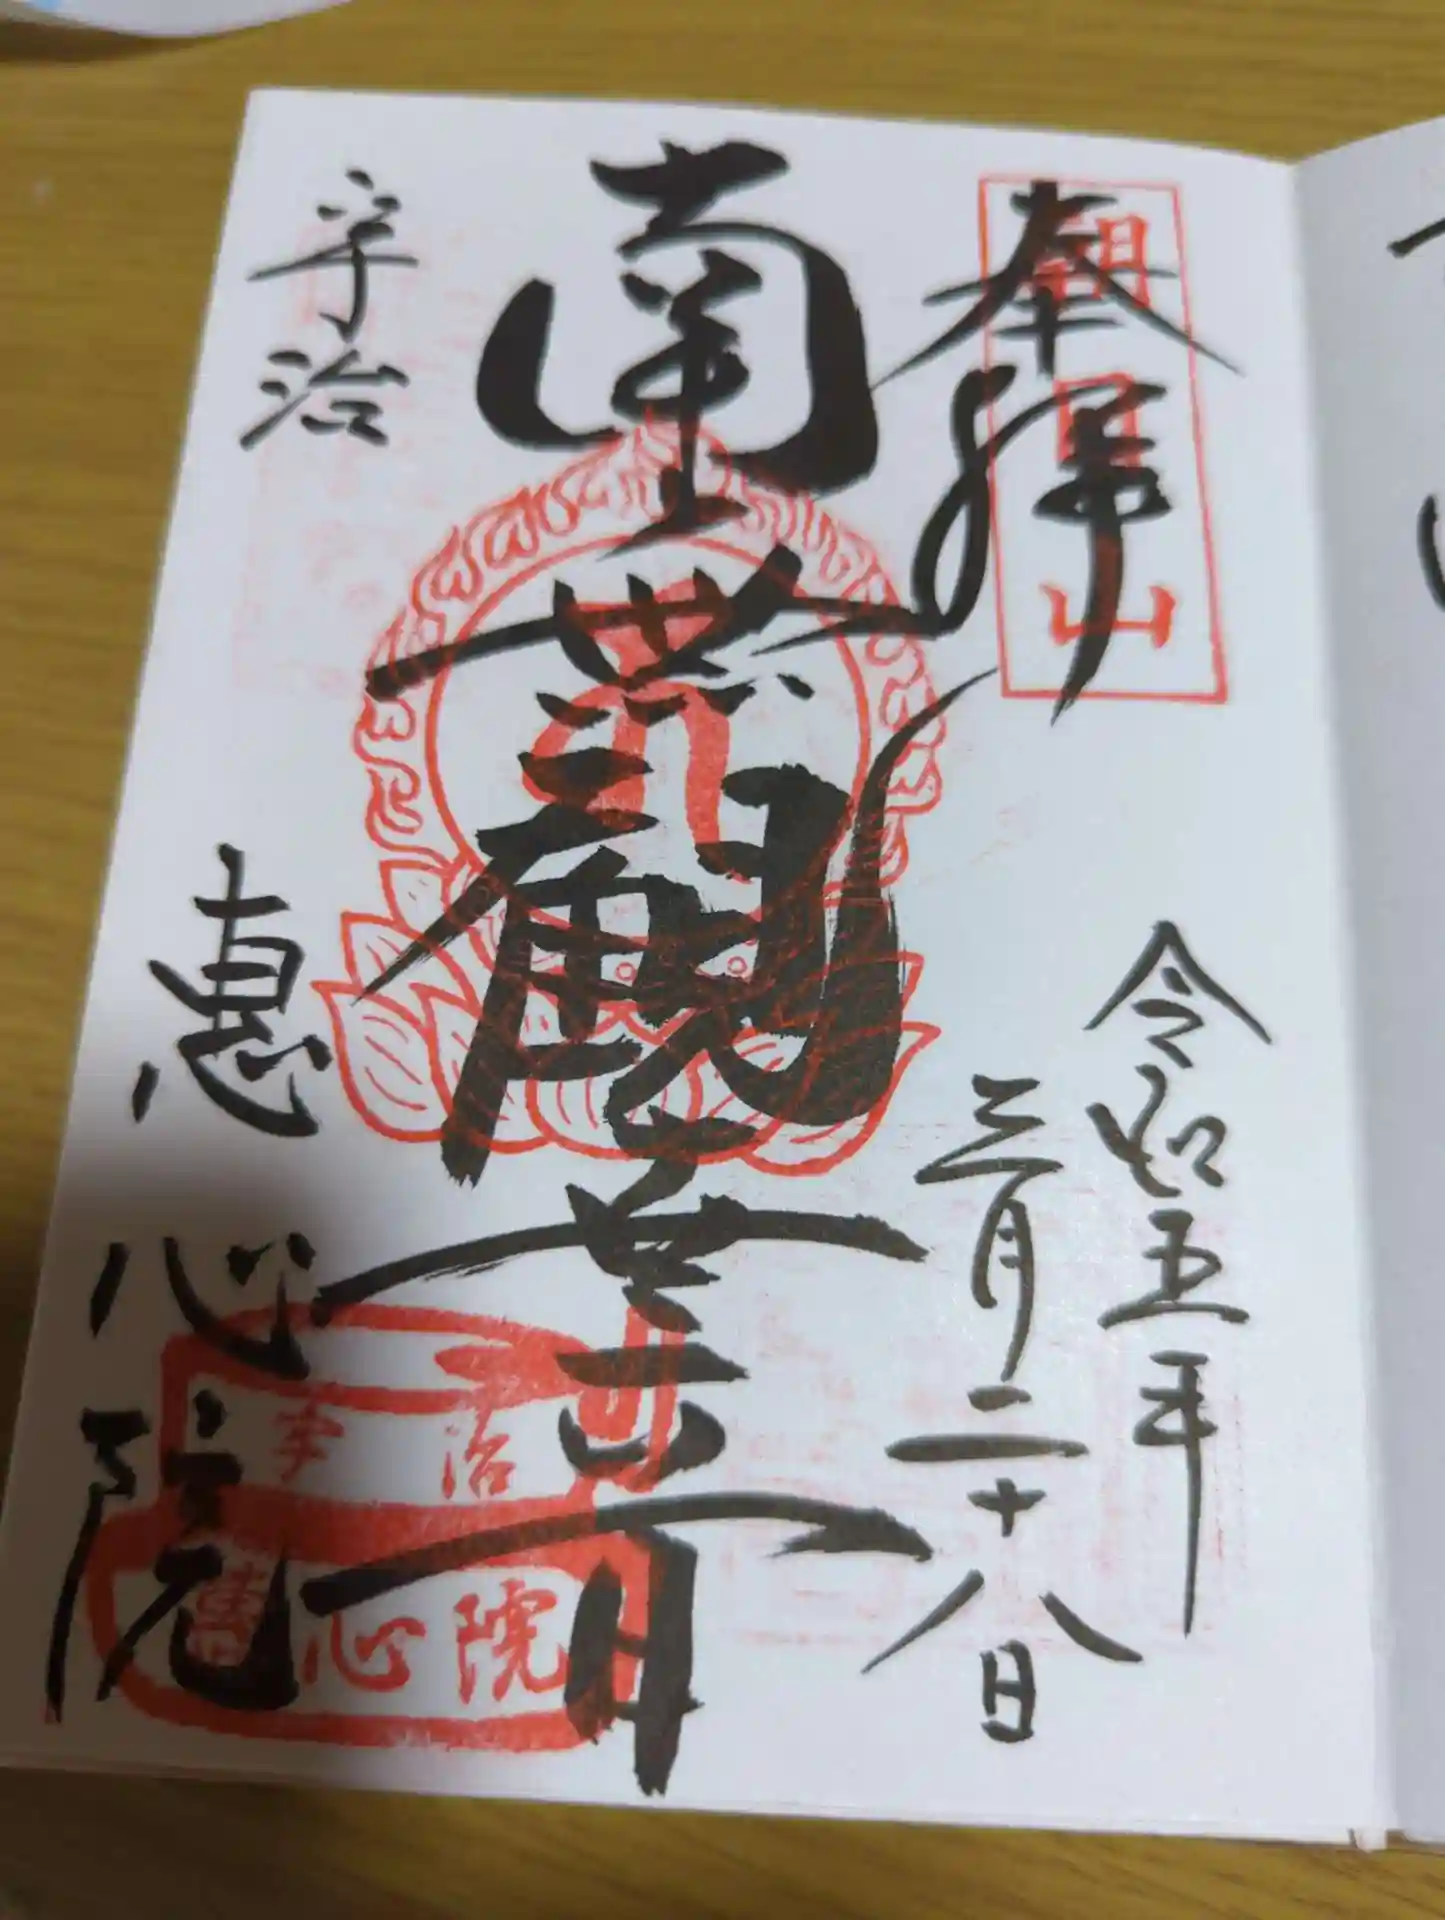 奉拝
朝日山
令和五年
三月二十八日
南無観世音
宇治
惠心院
宇治
惠心院